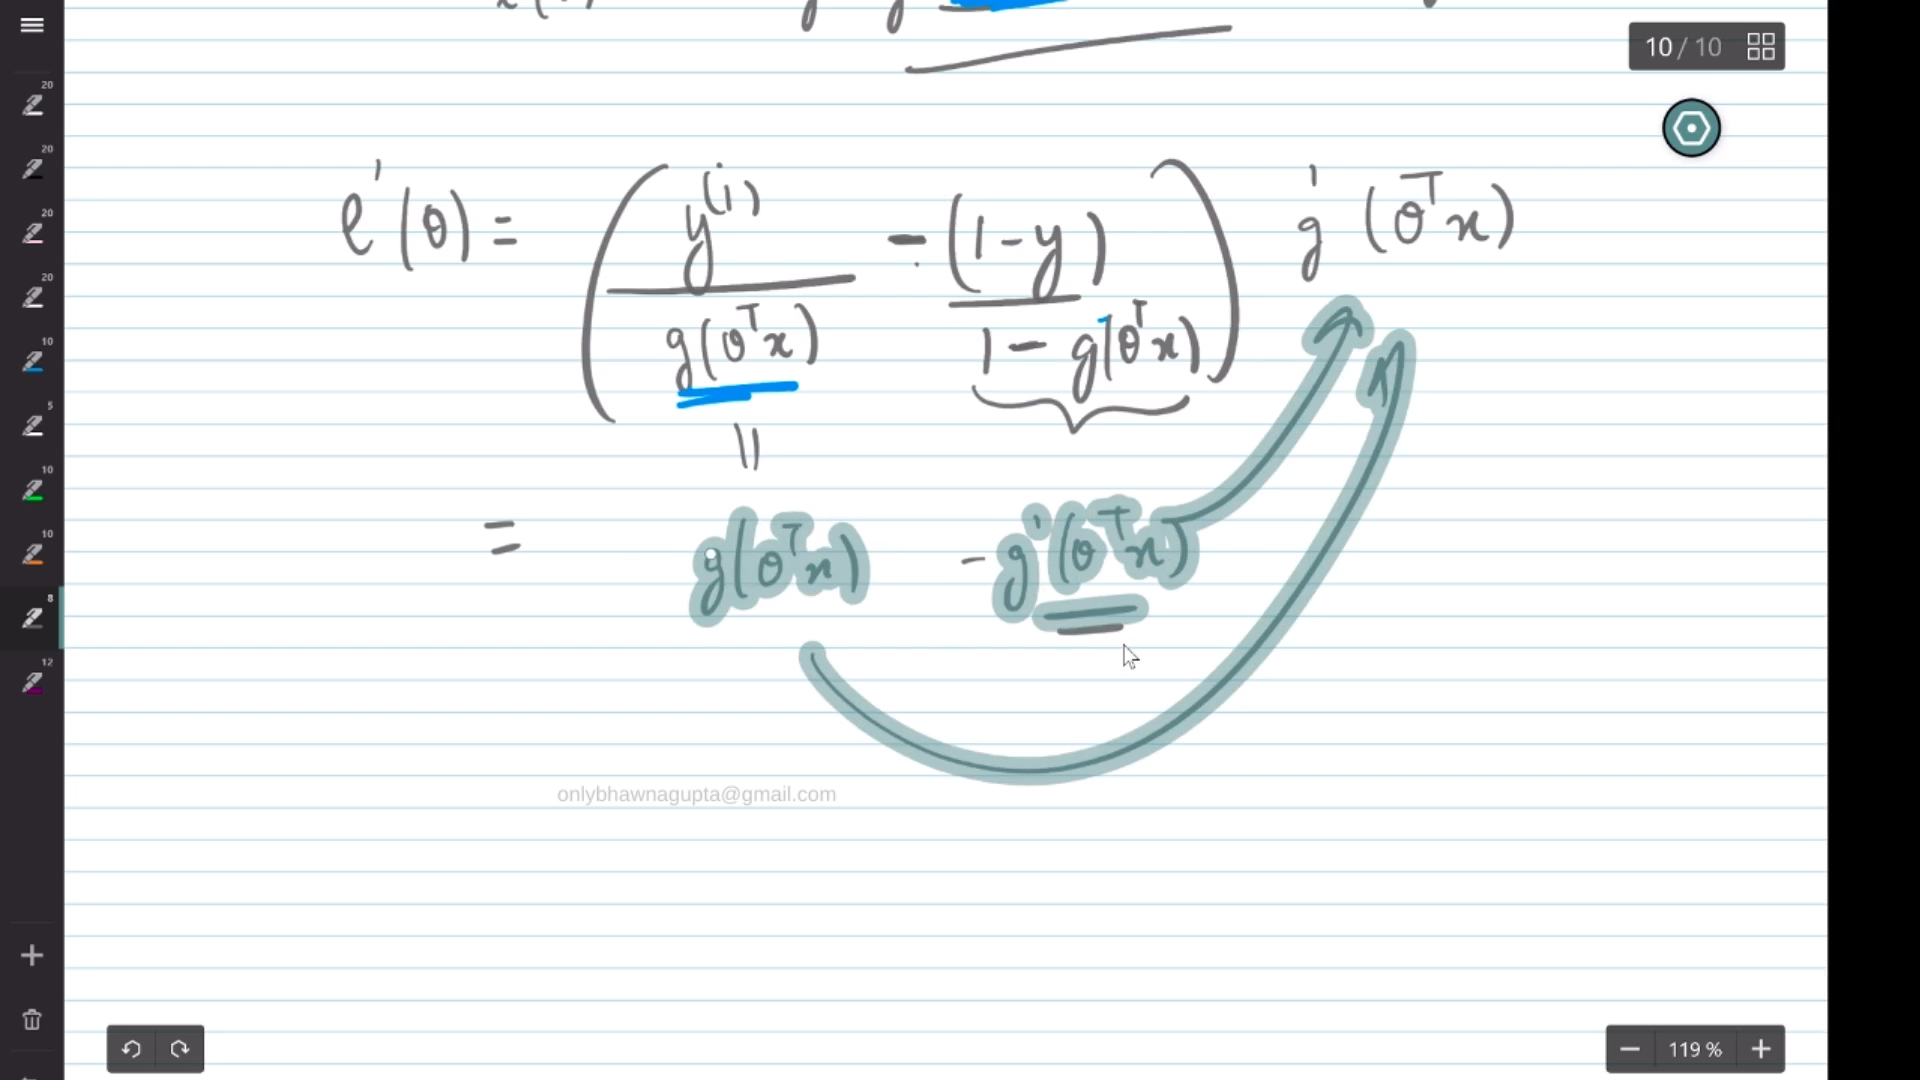 10 / 10
20
20
20
20
10
5
10
10
8
12
ℓ'(θ) = ( y^(i) / g(θ^T x) - (1-y) / 1 - g(θ^T x) ) g'(θ^T x)
||
= g(θ^T x) - g'(θ^T x)
onlybhawnagupta@gmail.com
119 %